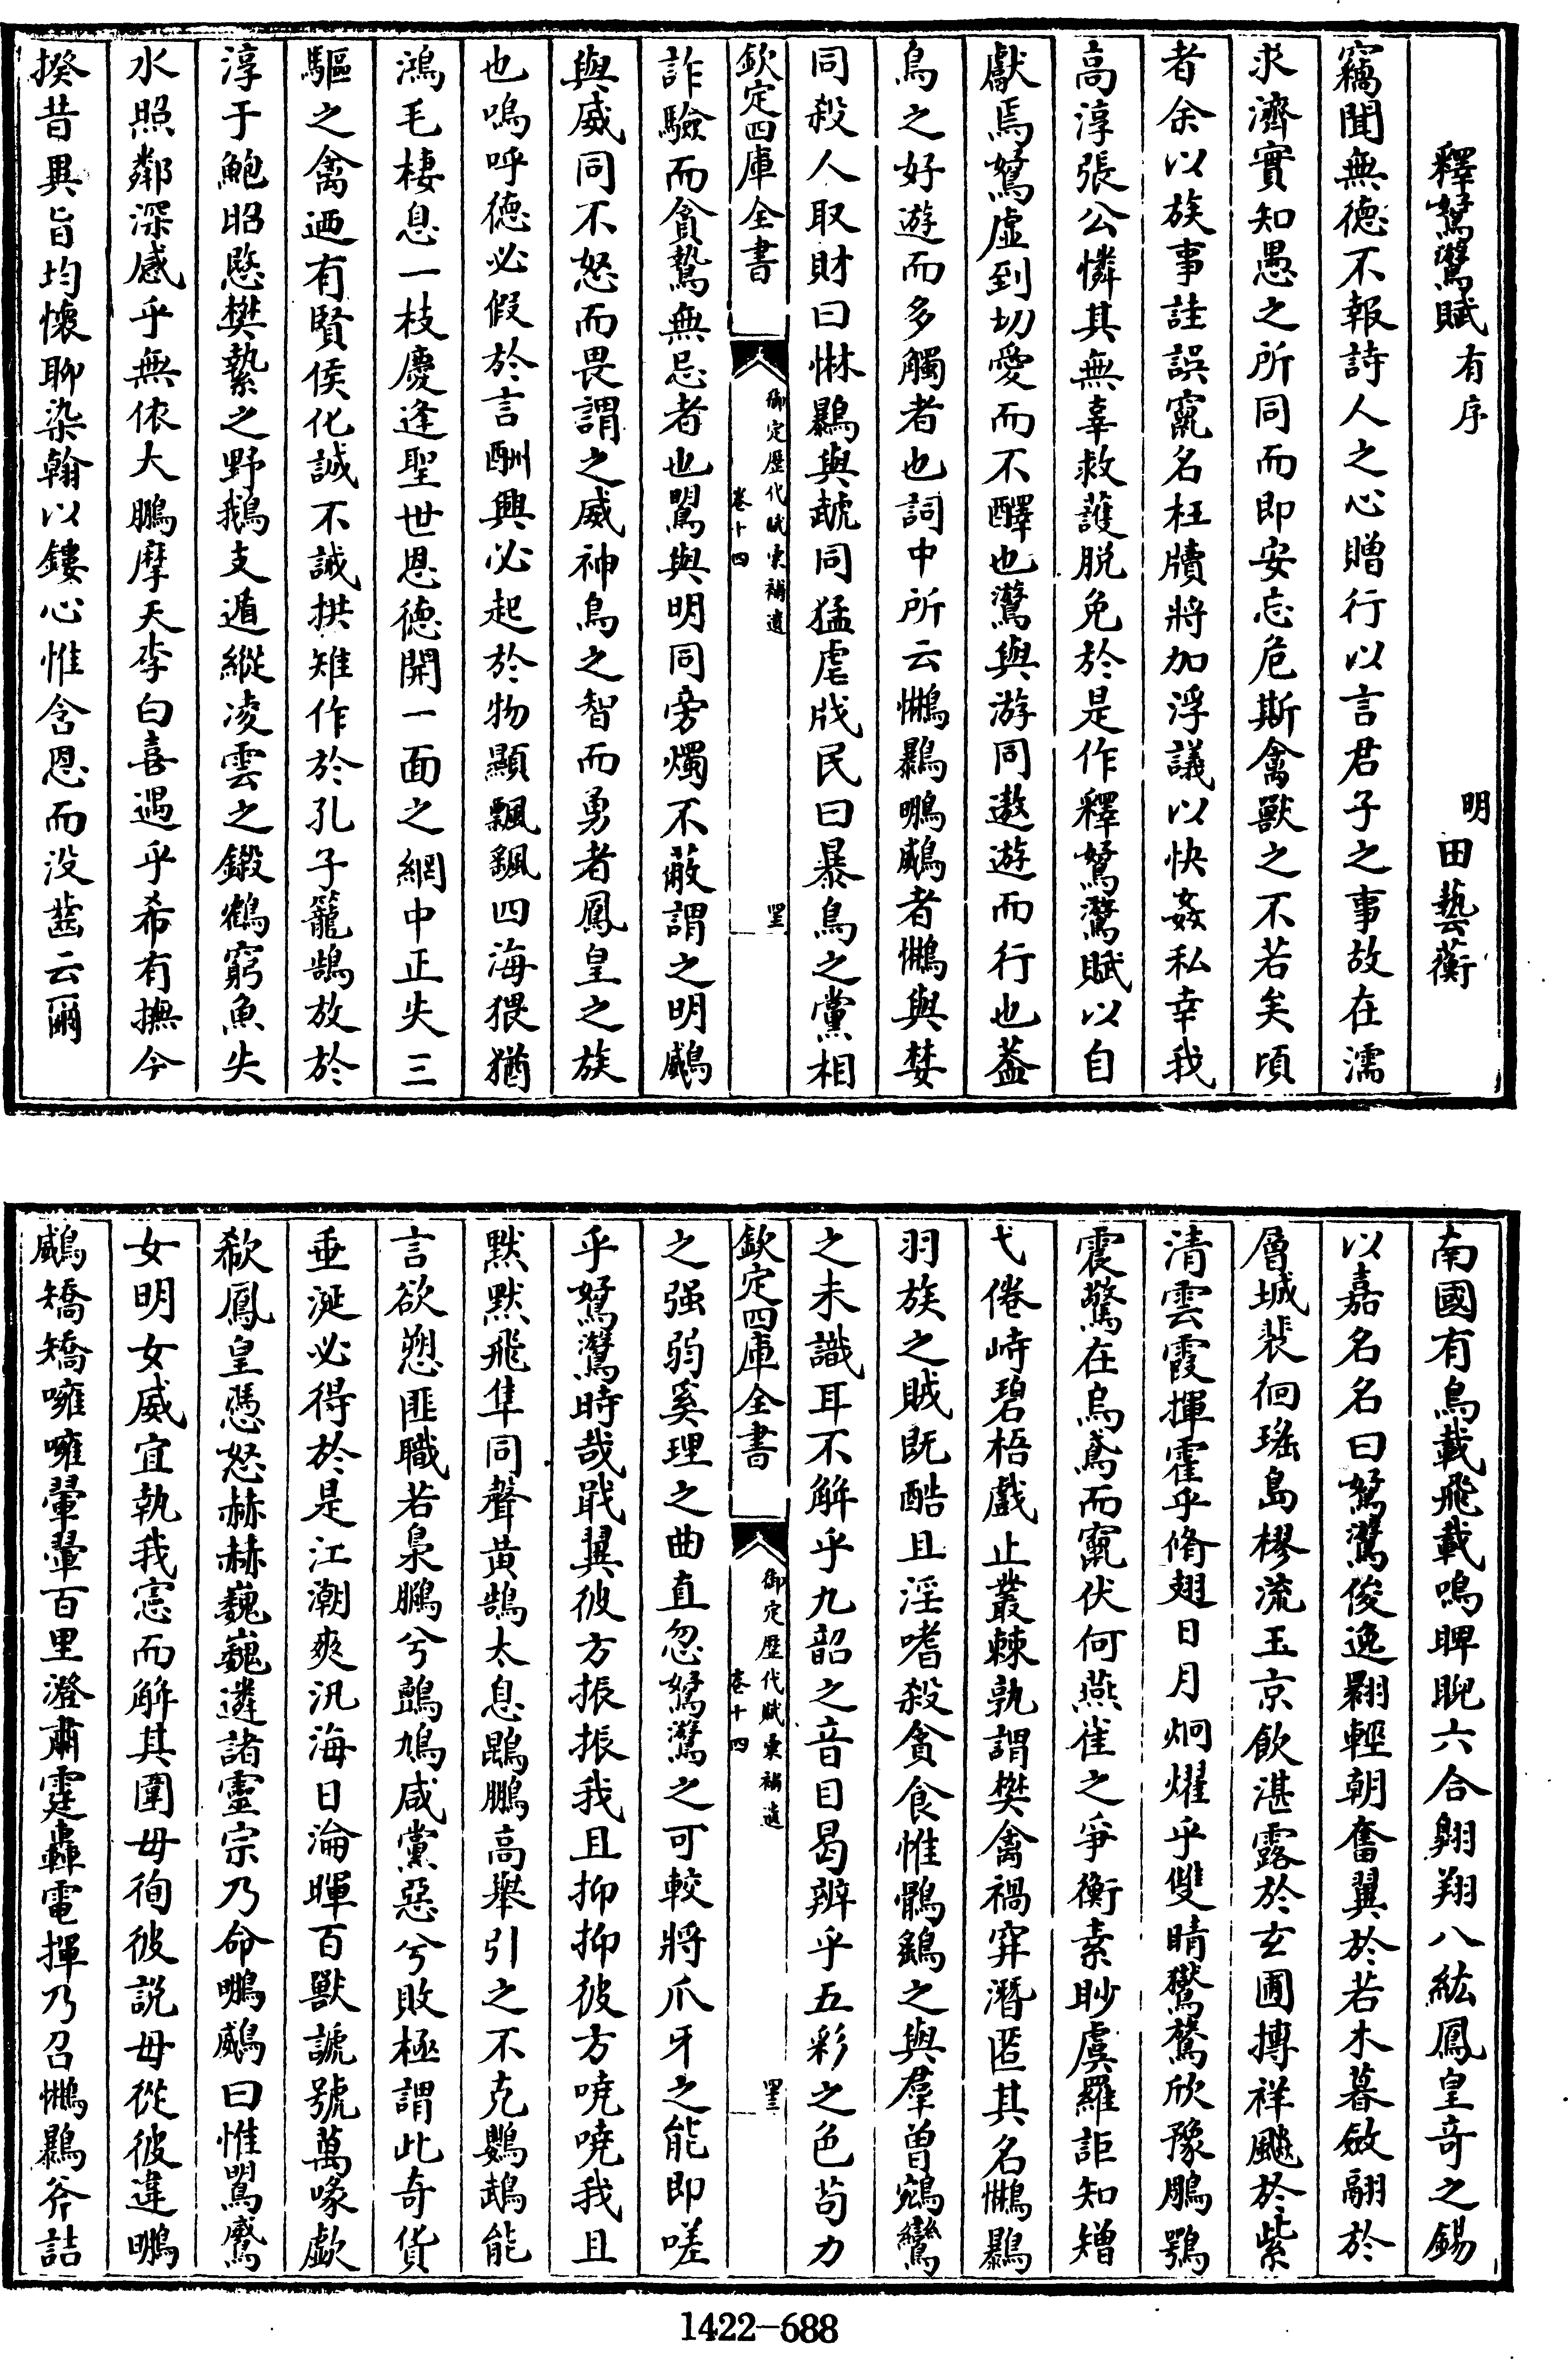 釋鴑鸄賦有序 明田藝蘅
竊聞無德不報詩人之心贈行以言君子之事故在濡
求濟實知愚之所同而即安忘危斯禽獸之不若矣頃
者余以族事詿誤竄名枉牘將加浮議以快姦私幸我
高淳張公憐其無辜救護脫免於是作釋賦以自
獻焉虛到切愛而不醳也與游同遨遊而行也葢
鳥之好遊而多觸者也詞中所云者與婪
同殺人取財曰惏與虣同猛虐戕民曰暴鳥之黨相
欽定四庫全書 御定歷代賦彙補遺 卷十四
詐驗而貪鷙無忌者也與明同旁燭不蔽謂之明
與威同不怒而畏謂之威神鳥之智而勇者鳳皇之族
也嗚呼德必假於言酬興必起於物顯飄颻四海猥猶
鴻毛棲息一枝慶逢聖世恩德開一面之網中正失三
驅之禽迺有賢侯化誠不誡拱雉作於孔子籠鵠放於
淳于鮑昭愍樊縶之野鵝支遁縱凌雲之鎩鶴窮魚失
水照鄰深感乎無依大鵬摩天李白喜遇乎希有撫今
揆昔異旨均懷聊染翰以鏤心惟含恩而没齒云爾
南國有鳥載飛載鳴睥睨六合翺翔八紘鳳皇竒之錫
以嘉名名曰俊逸翾輕朝奮翼於若木暮斂翮於
層城裴徊瑤島樛流玉京飲湛露於玄圃摶祥飈於紫
清雲霞揮霍乎脩翅日月炯燿乎雙睛欣豫鵰鶚
震驚在烏鳶而竄伏何燕雀之爭衡素眇虞羅詎知矰
弋倦峙碧梧戲止叢棘孰謂樊禽禍穽潛匿其名
羽族之賊既酷且淫嗜殺貪食惟鶻鷂之與羣曾鵷鸞
之未識耳不解乎九韶之音目曷辨乎五彩之色茍力
欽定四庫全書 御定歷代賦彙補遺 卷十四
之强弱奚理之曲直忽之可較將爪牙之能即嗟
乎時哉戢翼彼方振振我且抑抑彼方哓哓我且
默默飛隼同聲黄鵠太息鵬高舉引之不克鸚鵡能
言欲愬匪職若梟鵬兮鷓鳩咸黨惡兮敗極謂此奇貨
垂涎必得於是江潮爽汛海日淪暉百獸諕號萬喙歔
欷鳳皇憑怒赫赫巍巍遴諸靈宗乃命曰惟
女明女威宜執我憲而解其圍毋徇彼說毋從彼違
矯矯噰噰翬翬百里澄肅霆轟電揮乃召斧詰
1422-688